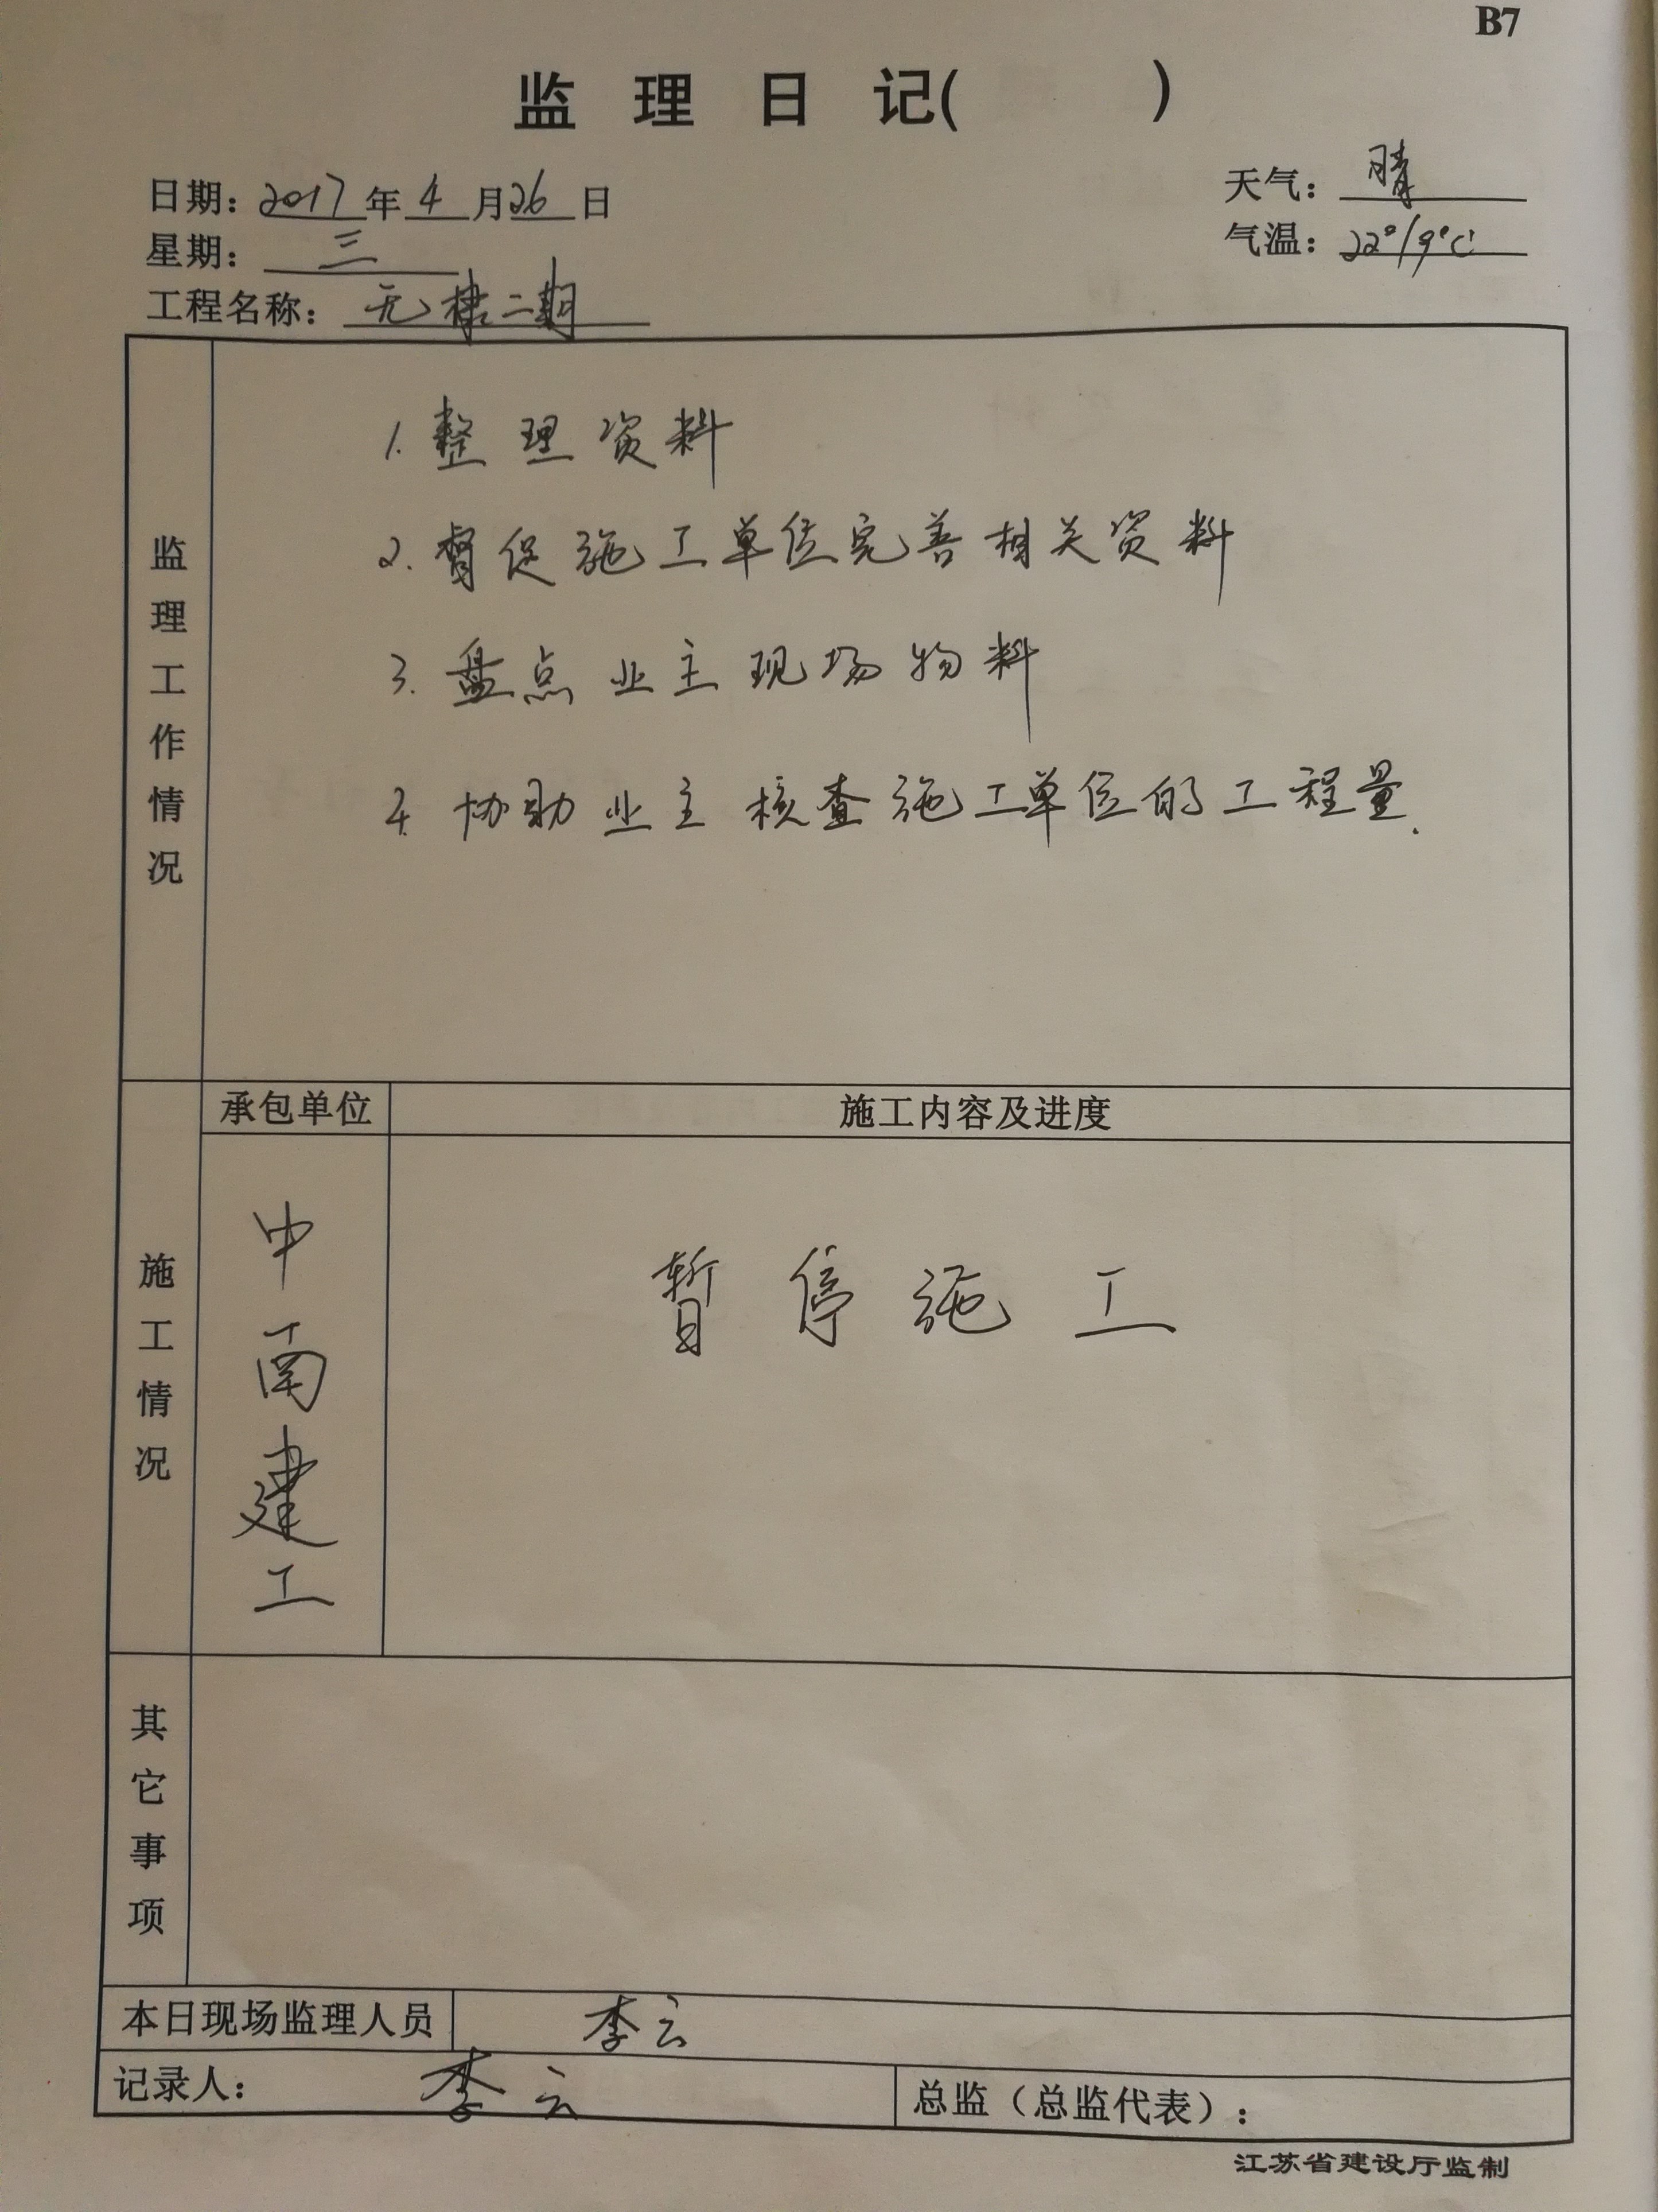 B7
监理日记(　　)
日期：2017年4月26日
天气：晴
星期：三
气温：22°/9°C
工程名称：无棣二期
监理工作情况
1.整理资料
2.督促施工单位完善相关资料
3.盘点业主现场物料
4.协助业主核查施工单位的工程量.
施工情况
承包单位 施工内容及进度
中南建工
暂停施工
其它事项
本日现场监理人员 李云
记录人：李云 总监（总监代表）：
江苏省建设厅监制